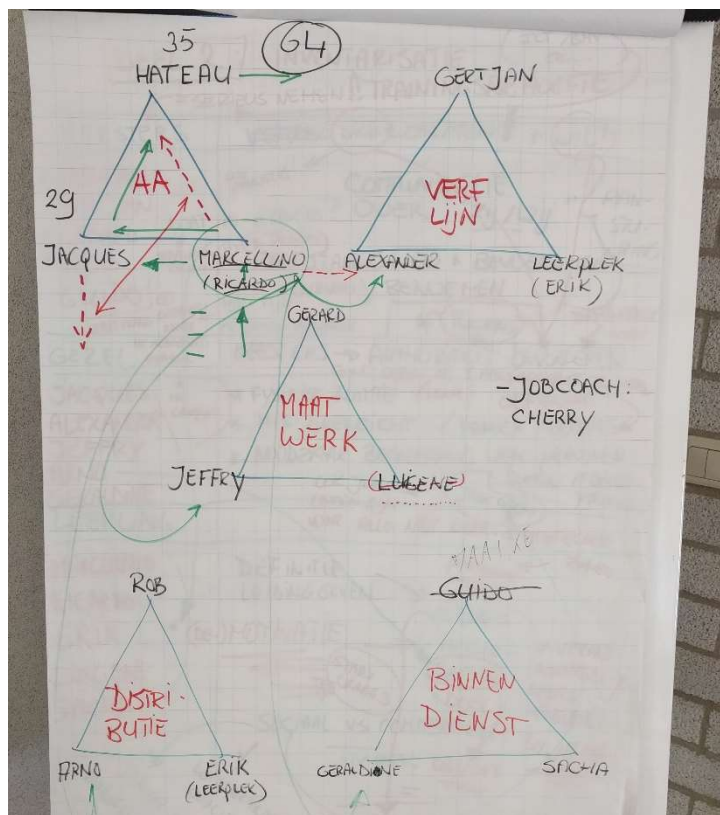 35
64
HATEAU
GERTJAN
AA
VERF
LIJN
29
JACQUES
MARCELLINO
(RICARDO)
ALEXANDER
LEERPLEK
(ERIK)
GERARD
MAAT
WERK
-JOBCOACH:
CHERRY
JEFFRY
ROB
GUIDO
DISTRI-
BUTIE
BINNEN
DIENST
ARNO
ERIK
(LEERPLEK)
GERALDINE
SACHA